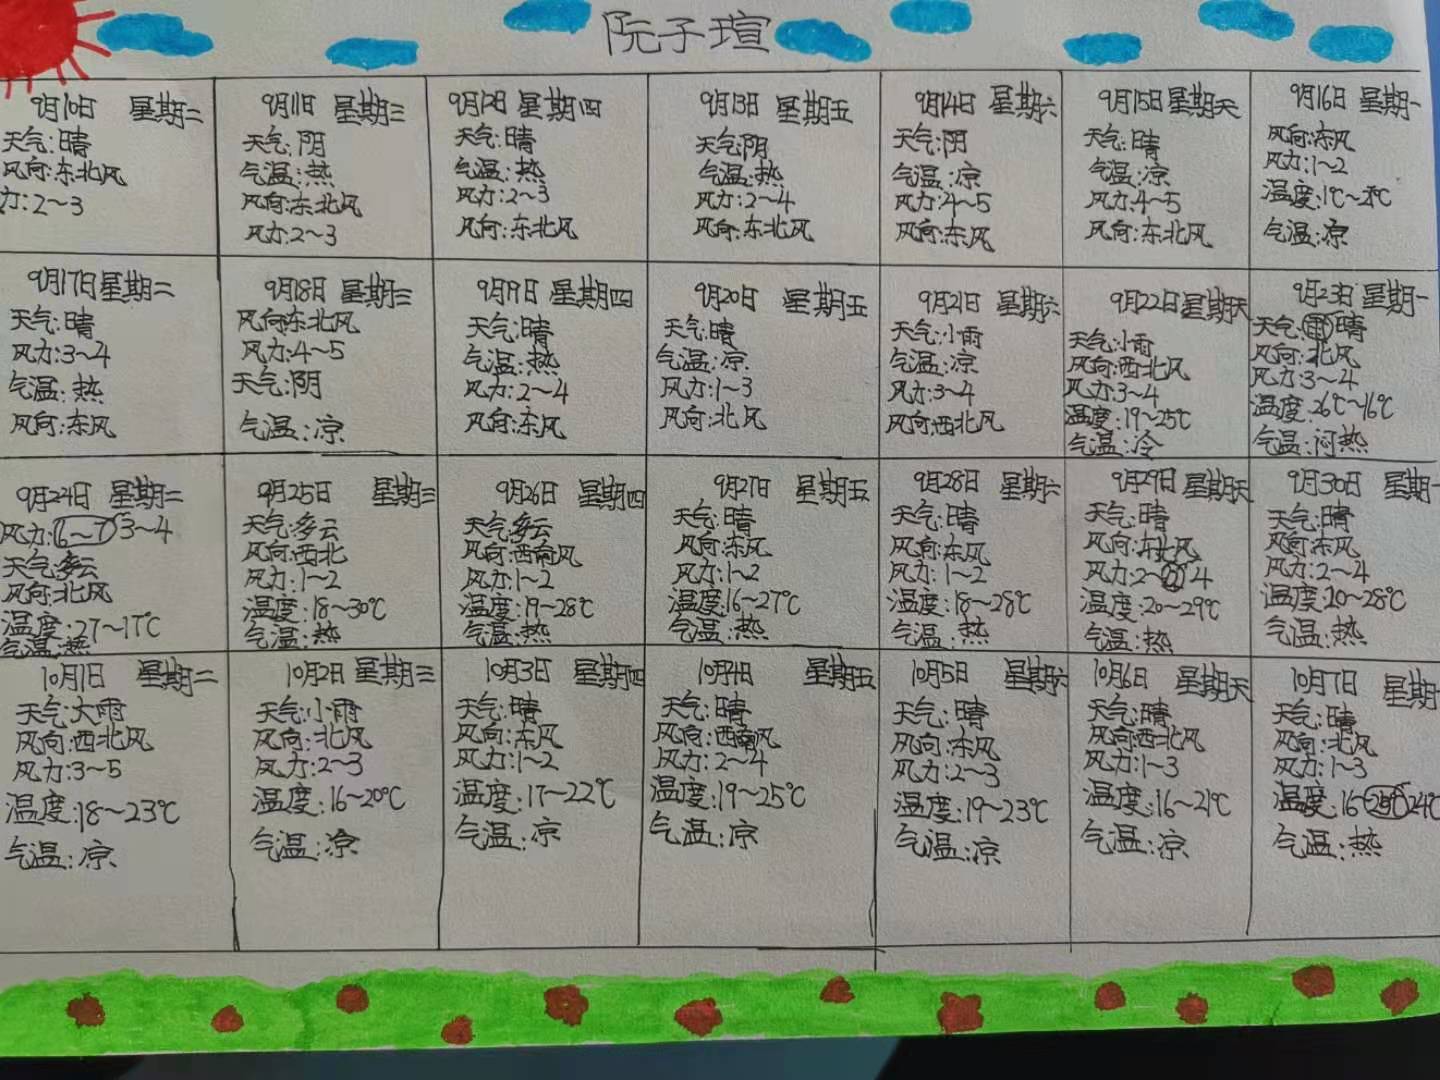 阮子瑄
9月10日 星期二
天气:晴
风向:东北风
力:2~3
9月11日 星期三
天气:阴
气温:热
风向:东北风
风力:2~3
9月12日 星期四
天气:晴
气温:热
风力:2~3
风向:东北风
9月13日 星期五
天气:阴
气温:热
风力:2~4
风向:东北风
9月14日 星期六
天气:阴
气温:凉
风力:4~5
风向:东风
9月15日 星期天
天气:晴
气温:凉
风力:4~5
风向:东北风
9月16日 星期一
风向:东风
风力:1~2
温度:1℃~2℃
气温:凉
9月17日 星期二
天气:晴
风力:3~4
气温:热
风向:东风
9月18日 星期三
风向:东北风
风力:4~5
天气:阴
气温:凉
9月19日 星期四
天气:晴
气温:热
风力:2~4
风向:东风
9月20日 星期五
天气:晴
气温:凉
风力:1~3
风向:北风
9月21日 星期六
天气:小雨
气温:凉
风力:3~4
风向:西北风
9月22日 星期天
天气:小雨
风向:西北风
风力:3~4
温度:19~25℃
气温:冷
9月23日 星期一
天气:晴
风向:北风
风力:3~4
温度:26℃~16℃
气温:闷热
9月24日 星期二
风力:6~7 3~4
天气:多云
风向:北风
温度:27~17℃
气温:热
9月25日 星期三
天气:多云
风向:西北
风力:1~2
温度:18~30℃
气温:热
9月26日 星期四
天气:多云
风向:西南风
风力:1~2
温度:19~28℃
气温:热
9月27日 星期五
天气:晴
风向:东风
风力:1~2
温度:16~27℃
气温:热
9月28日 星期六
天气:晴
风向:东风
风力:1~2
温度:18~28℃
气温:热
9月29日 星期天
天气:晴
风向:东北风
风力:2~4
温度:20~29℃
气温:热
9月30日 星期一
天气:晴
风向:东风
风力:2~4
温度:20~28℃
气温:热
10月1日 星期二
天气:大雨
风向:西北风
风力:3~5
温度:18~23℃
气温:凉
10月2日 星期三
天气:小雨
风向:北风
风力:2~3
温度:16~20℃
气温:冷
10月3日 星期四
天气:晴
风向:东风
风力:1~2
温度:17~22℃
气温:凉
10月4日 星期五
天气:晴
风向:西南风
风力:2~4
温度:19~25℃
气温:凉
10月5日 星期六
天气:晴
风向:东风
风力:2~3
温度:19~23℃
气温:凉
10月6日 星期天
天气:晴
风向:西北风
风力:1~3
温度:16~21℃
气温:凉
10月7日 星期一
天气:晴
风向:北风
风力:1~3
温度:16~24℃
气温:热